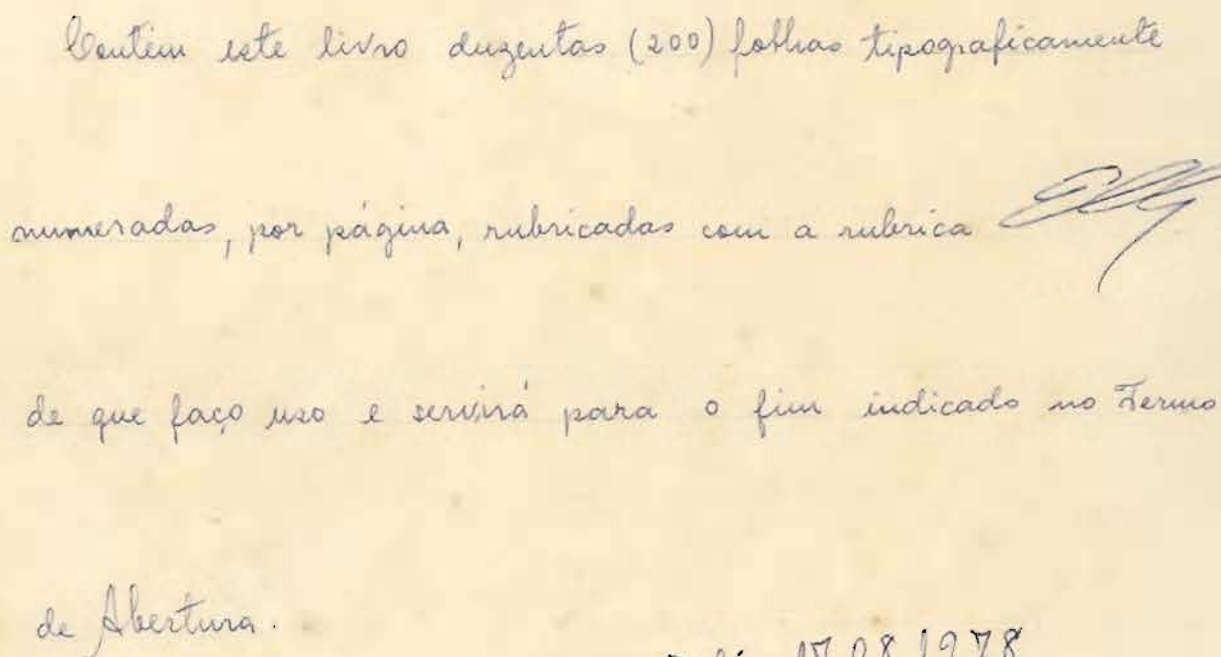 Contém este livro duzentas (200) folhas tipograficamente
numeradas, por página, rubricadas com a rubrica
de que faço uso e servirá para o fim indicado no Termo
de Abertura.
17.08.1978